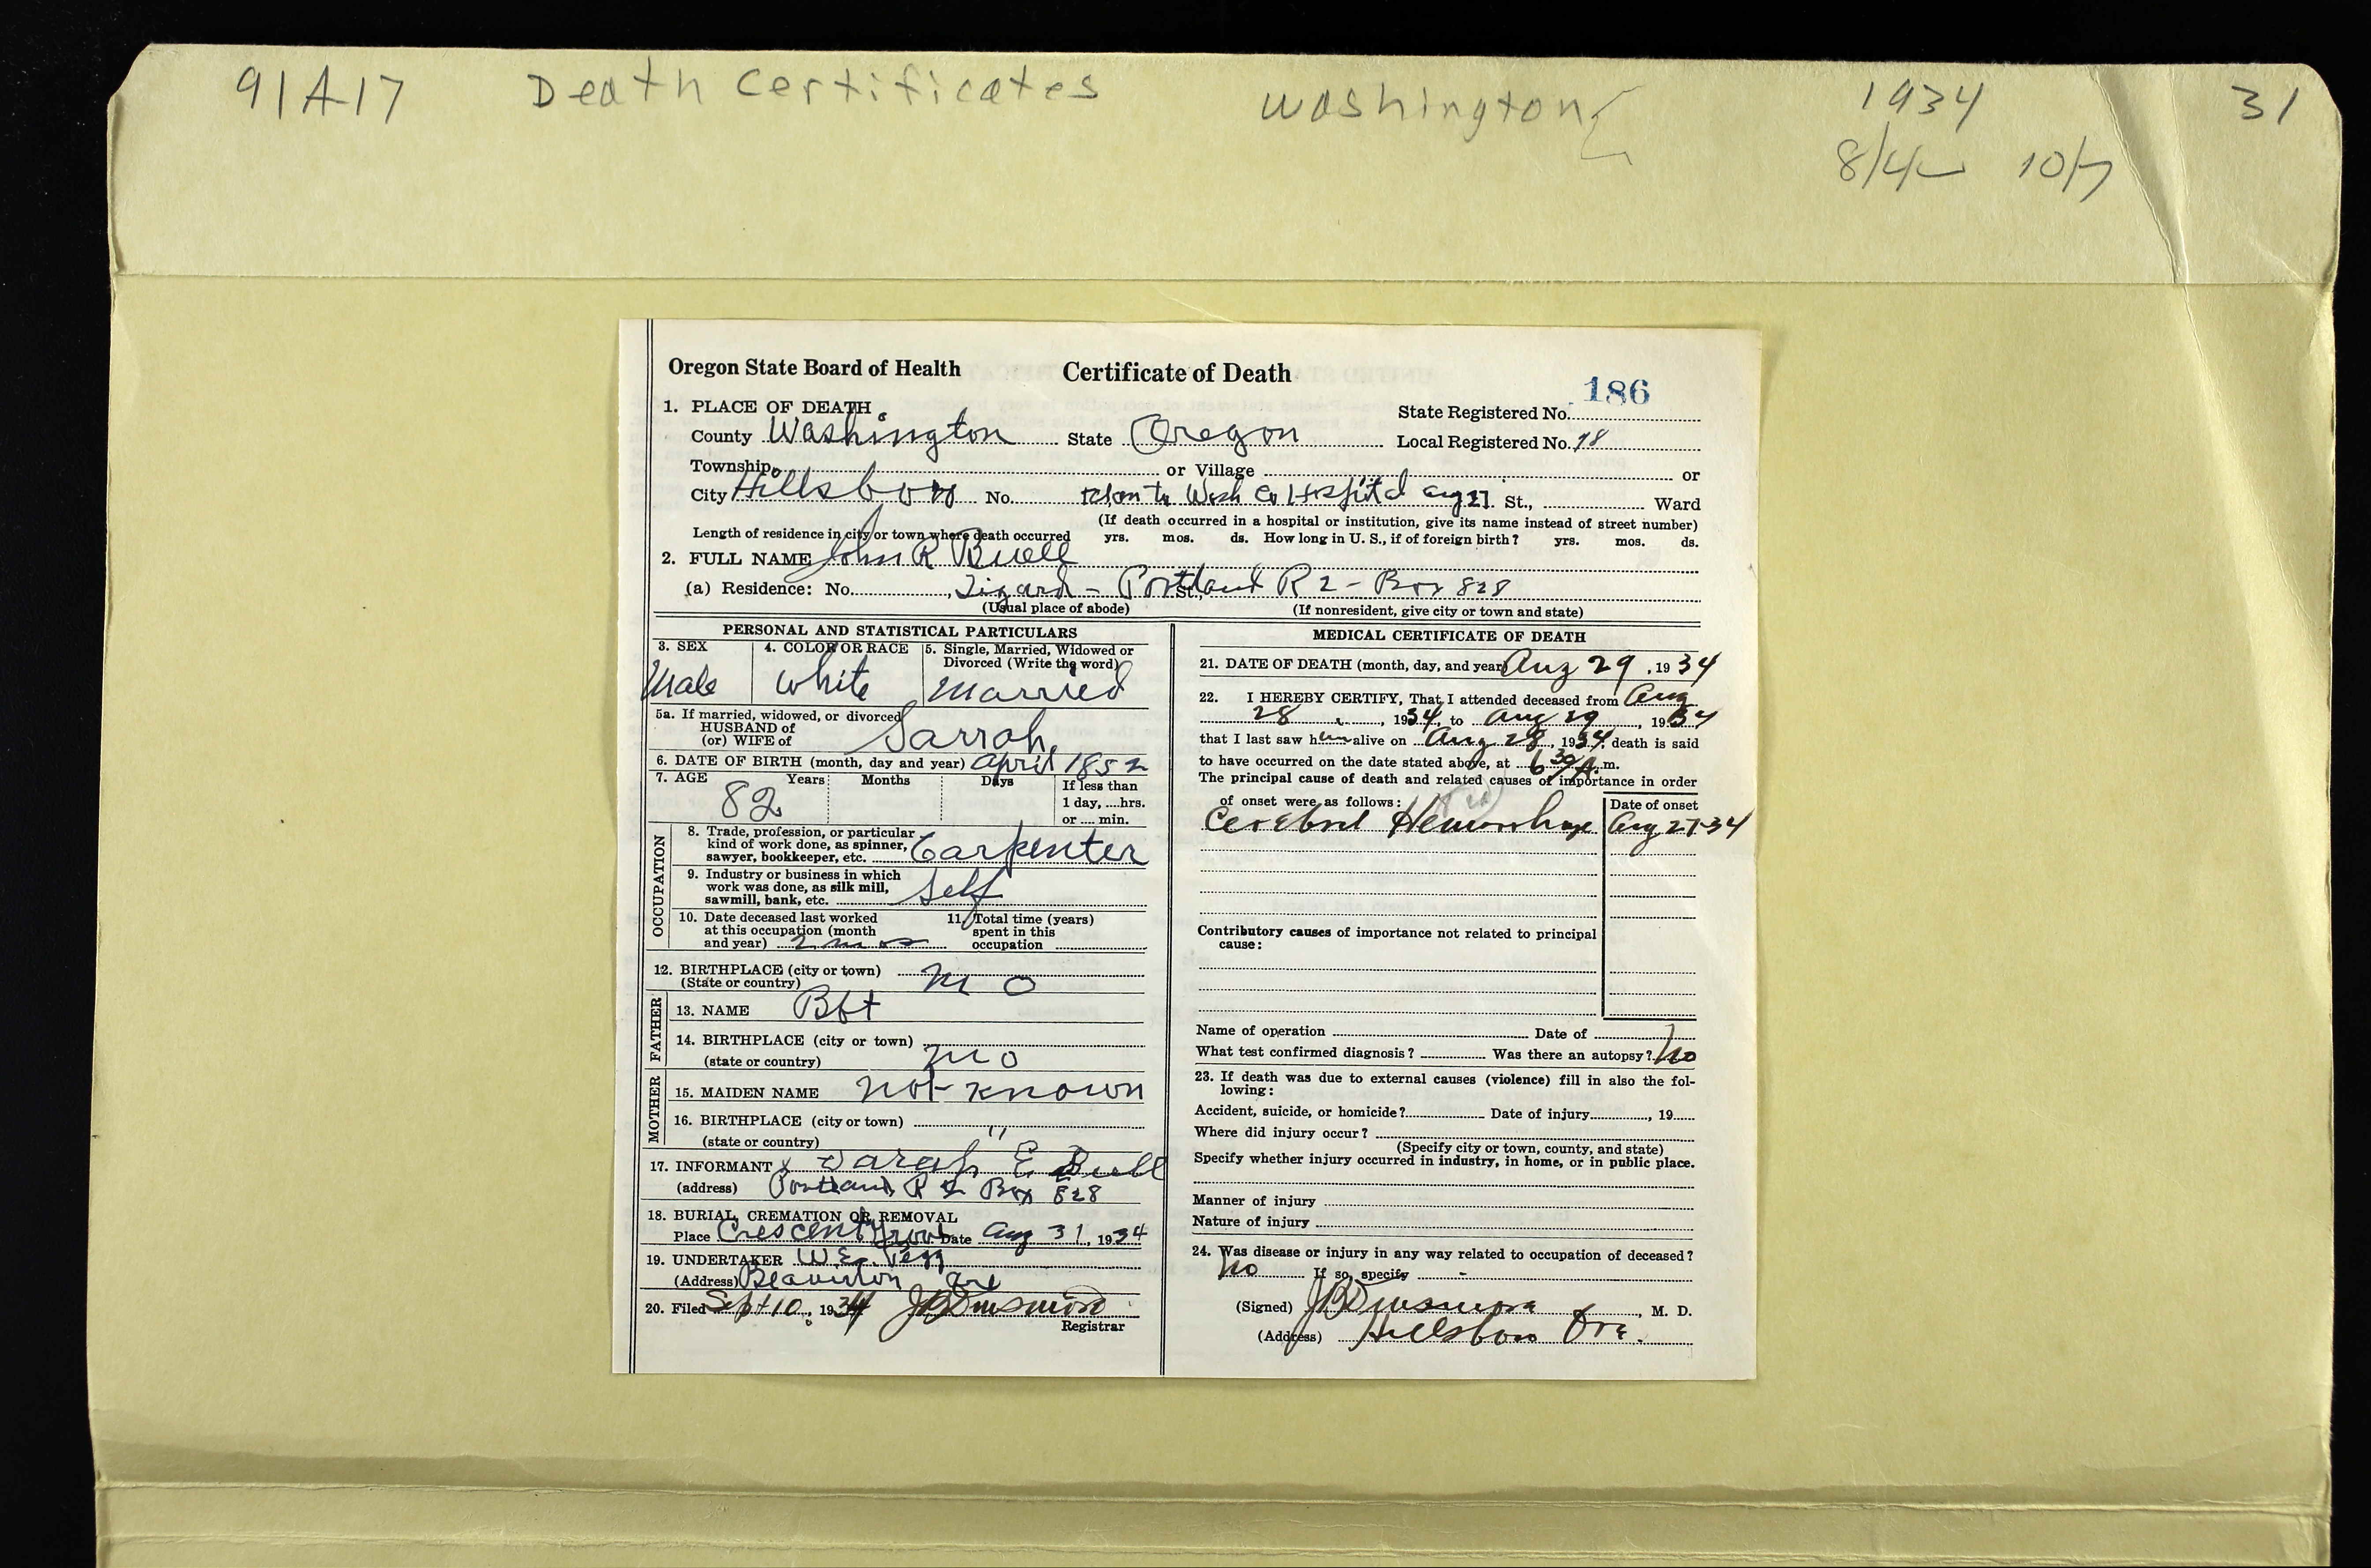 91A17 Death Certificates Washington 1934 31
8/4 – 10/7
Oregon State Board of Health Certificate of Death 186
1. PLACE OF DEATH State Registered No.
County Washington State Oregon Local Registered No. 78
Township or Village or
City Hillsboro No. Wash Co Hospital Aug 27. St., Ward
(If death occurred in a hospital or institution, give its name instead of street number)
Length of residence in city or town where death occurred yrs. mos. ds. How long in U. S., if of foreign birth? yrs. mos. ds.
2. FULL NAME John R Buell
(a) Residence: No. Tigard - Portland R 2 - Box 828 St.,
(Usual place of abode) (If nonresident, give city or town and state)
PERSONAL AND STATISTICAL PARTICULARS
3. SEX 4. COLOR OR RACE 5. Single, Married, Widowed or
Divorced (Write the word)
Male White Married
5a. If married, widowed, or divorced
HUSBAND of
(or) WIFE of Sarrah
6. DATE OF BIRTH (month, day and year) April 1852
7. AGE Years Months Days If less than
82 1 day, ....hrs.
or .... min.
OCCUPATION
8. Trade, profession, or particular
kind of work done, as spinner,
sawyer, bookkeeper, etc. Carpenter
9. Industry or business in which
work was done, as silk mill,
sawmill, bank, etc. Self
10. Date deceased last worked 11. Total time (years)
at this occupation (month spent in this
and year) 2 mos occupation
12. BIRTHPLACE (city or town)
(State or country) Mo
FATHER
13. NAME
14. BIRTHPLACE (city or town)
(state or country) Mo
MOTHER
15. MAIDEN NAME not known
16. BIRTHPLACE (city or town)
(state or country) "
17. INFORMANT x Sarah E Buell
(address) Portland, R 2 Box 828
18. BURIAL, CREMATION OR REMOVAL
Place Crescent Grove Date Aug 31, 1934
19. UNDERTAKER W.E. Pegg
(Address) Beaverton Ore
20. Filed Sept 10, 1934 JB Dinsmore
Registrar
MEDICAL CERTIFICATE OF DEATH
21. DATE OF DEATH (month, day, and year) Aug 29, 1934
22. I HEREBY CERTIFY, That I attended deceased from Aug
28, 1934, to Aug 29, 1934
that I last saw him alive on Aug 28, 1934, death is said
to have occurred on the date stated above, at 6 30 A. m.
The principal cause of death and related causes of importance in order
of onset were as follows: Date of onset
Cerebral Hemorrhage Aug 27-34
Contributory causes of importance not related to principal
cause:
Name of operation Date of
What test confirmed diagnosis? Was there an autopsy? No
23. If death was due to external causes (violence) fill in also the fol-
lowing:
Accident, suicide, or homicide? Date of injury , 19
Where did injury occur?
(Specify city or town, county, and state)
Specify whether injury occurred in industry, in home, or in public place.
Manner of injury
Nature of injury
24. Was disease or injury in any way related to occupation of deceased?
No If so, specify -
(Signed) JB Dinsmore , M. D.
(Address) Hillsboro Ore.